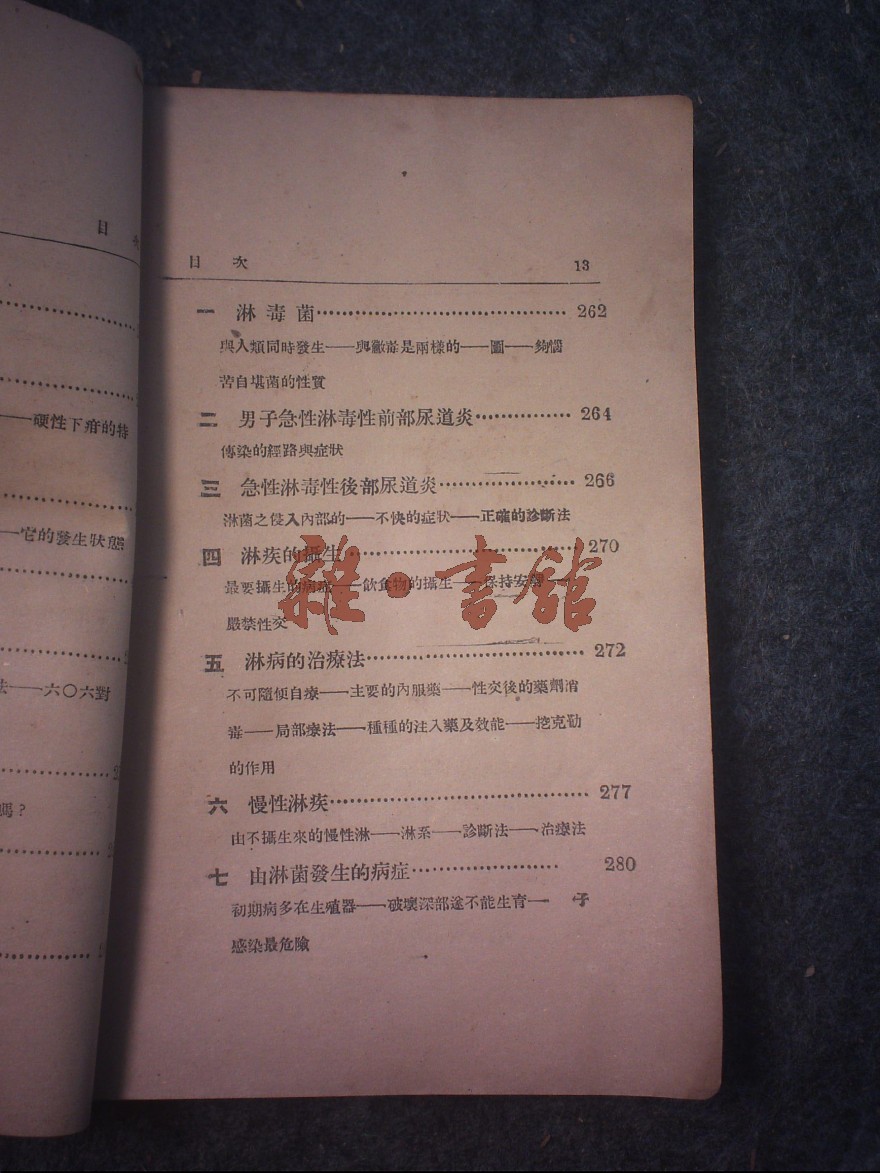 目
——硬性下疳的特
—它的發生狀態
法——六〇六對
嗎?
目 次 13
一 淋毒菌……………………………… 262
與人類同時發生——與黴毒是兩樣的——圖——夠惱
苦自堪菌的性質
二 男子急性淋毒性前部尿道炎………… 264
傳染的經路與症狀
三 急性淋毒性後部尿道炎……………… 266
淋菌之侵入內部的——不快的症狀——正確的診斷法
四 淋疾的攝生…………………………… 270
最要攝生的病症——飲食物的攝生——保持安靜——
嚴禁性交
五 淋病的治療法………………………… 272
不可隨便自療——主要的內服藥——性交後的藥劑消
毒——局部療法——種種的注入藥及效能——挖克勒
的作用
六 慢性淋疾……………………………… 277
由不攝生來的慢性淋——淋系——診斷法——治療法
七 由淋菌發生的病症…………………… 280
初期病多在生殖器——破壞深部遂不能生育— 子
感染最危險
雜·書館